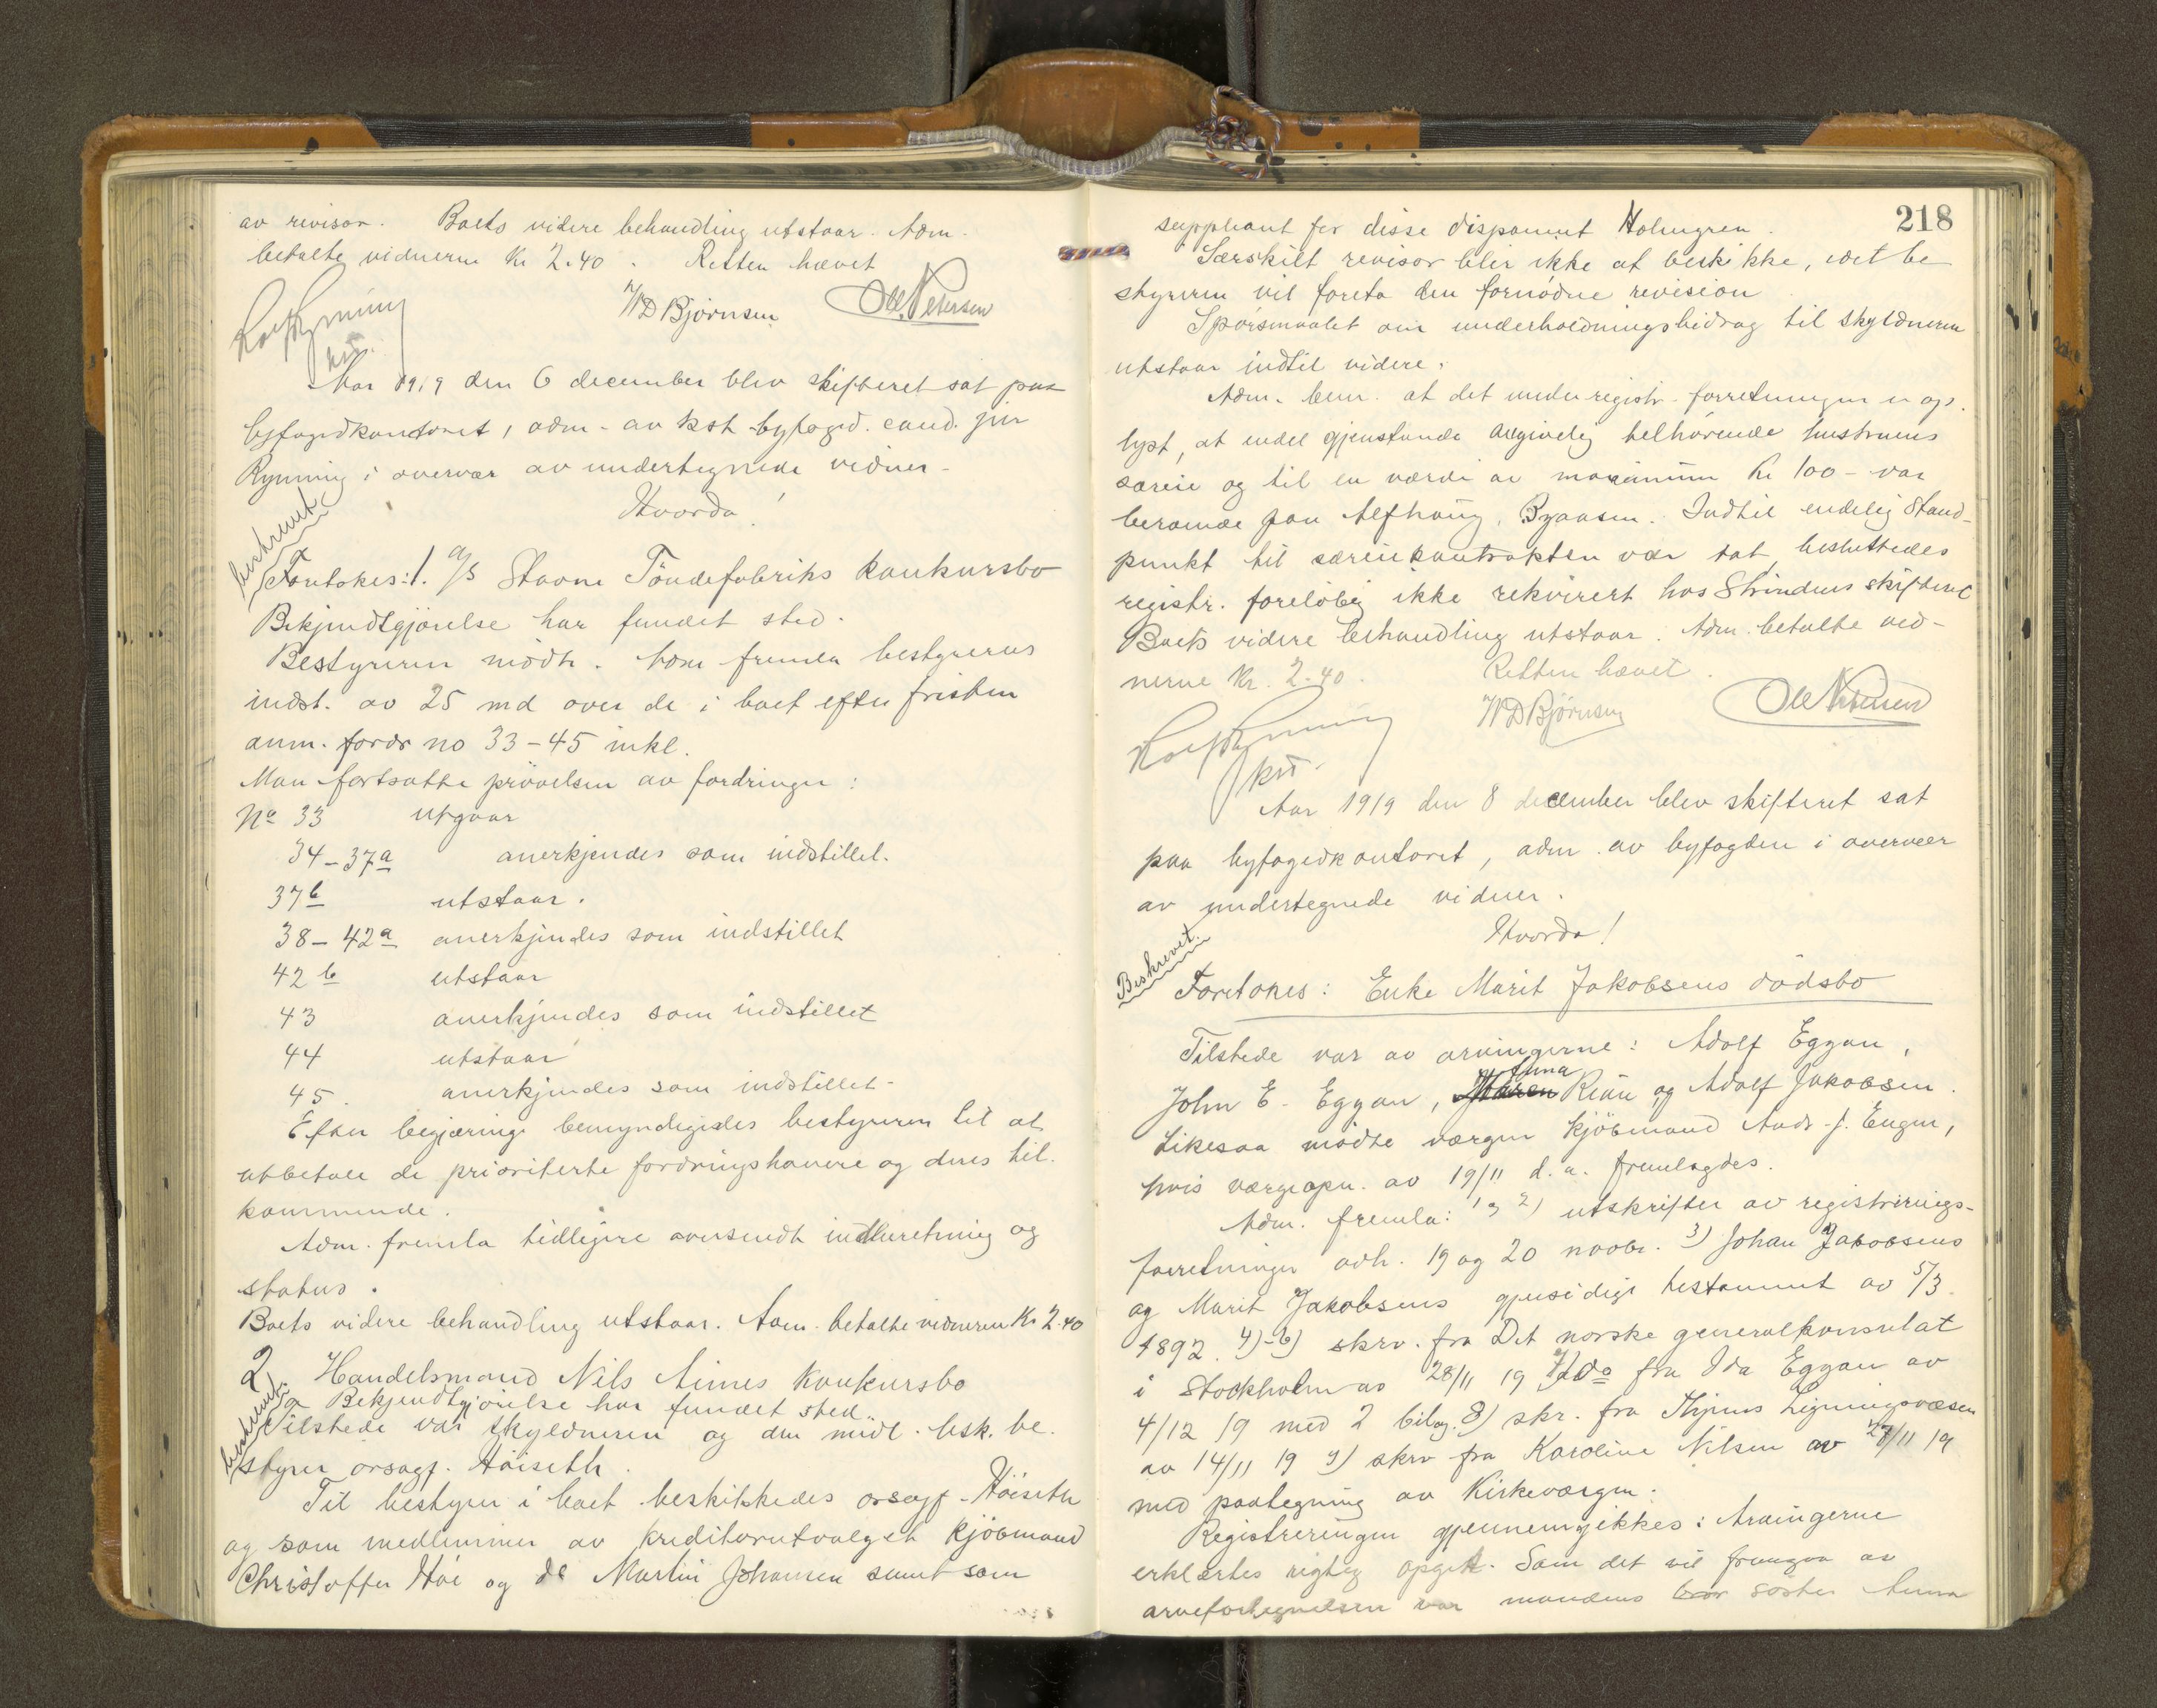 av revisor. Boets videre behandling utstaar. Adm.
betalte vidnerne Kr 2.40. Retten hævet
Rolf Rynning WD Bjørnsen Ole Petersen
kst.
Aar 1919 den 6 december blev skifteret sat paa
byfogdkontoret, adm. av kst byfogd. cand. jur
Rynning i overvær av undertegnede vidner.
Hvorda!
beskrevet
Foretokes: 1. A/S Stavne Töndefabriks konkursbo
Bekjendtgjörelse har fundet sted.
Bestyreren mödte. Som fremla bestyrerens
indst. av 25 md over de i boet efter fristen
anm. fordr no 33-45 inkl.
Man fortsatte prövelsen av fordringer:
No 33 utgaar
34-37a anerkjendes som indstillet.
37b utstaar.
38-42a anerkjendes som indstillet
42b utstaar
43 anerkjendes som indstillet
44 utstaar
45. anerkjendes som indstillet-
Efter begjæring bemyndigedes bestyreren til at
utbetale de prioriterte fordringshavere og deres til-
kommende.
Adm. fremla tidligere oversendt indberetning og
status.
Boets videre behandling utstaar. Adm. betalte vidnerne Kr 2.40
2 Handelsmand Nils Aunes konkursbo
Bekjendtgjörelse har fundet sted.
beskrevet
Tilstede var skyldneren og den midl. besk. be-
styrer orsagf. Höiseth.
Til bestyrer i boet beskikkedes orsagf. Höiseth
og som medlemmer av kreditorutvalget kjöbmand
Christoffer Höe og do Martin Johansen samt som
218
suppleant for disse disponent Holmgren.
Særskilt revisor blir ikke at beskikke, idet be
styreren vil foreta den fornödne revision
Spörsmaalet om underholdningsbidrag til skyldneren
utstaar indtil videre.
Adm. bem. at det under registr. forretningen er op-
lyst, at endel gjenstande angivelig tilhörende hustruens
særeie og til en værdi av maximum Kr 100- var
beroende paa Alfhaug, Byaasen. Indtil endelig stand-
punkt til særeiekontrakten var tat besluttedes
registr. foreløbig ikke rekvirert hos Strindens skifteret
Boets videre behandling utstaar. Adm. betalte vid-
nerne Kr. 2.40. Retten hævet.
Rolf Rynning WD Bjørnsen Ole Petersen
kst.
Aar 1919 den 8 december blev skifteret sat
paa byfogedkontoret, adm. av byfogden i overvær
av undertegnede vidner.
Hvorda!
Beskrevet.
Foretokes: Enke Marit Jakobsens dödsbo
Tilstede var av arvingerne: Adolf Eggan,
John E. Eggan, Anna Rian og Adolf Jakobsen
Likesaa mödte vergen kjöbmand Andr. J. Engen,
hvis vergeopn. av 19/11 d.a. fremlagdes.
Adm. fremla: 1 og 2) utskrifter av registrerings-
forretninger avh. 19 og 20 novbr. 3) Johan Jakobsens
og Marit Jakobsens gjensidige testament av 5/3
1892. 4)-6) skrv. fra Det norske generalkonsulat
i Stockholm av 28/11 19 7) do fra Ida Eggan av
4/12 19 med 2 bilag. 8) skr. fra Ligningsvæsen
av 14/11 19 9) skrv fra Karoline Nilsen av 28/11 19
med paategning av Kirkevergen.
Registreringen gjennemgikkes: Arvingerne
erklærtes rigtig opgit. Som det vil fremgaa av
arvefortegnelsen var mandens søster Anna